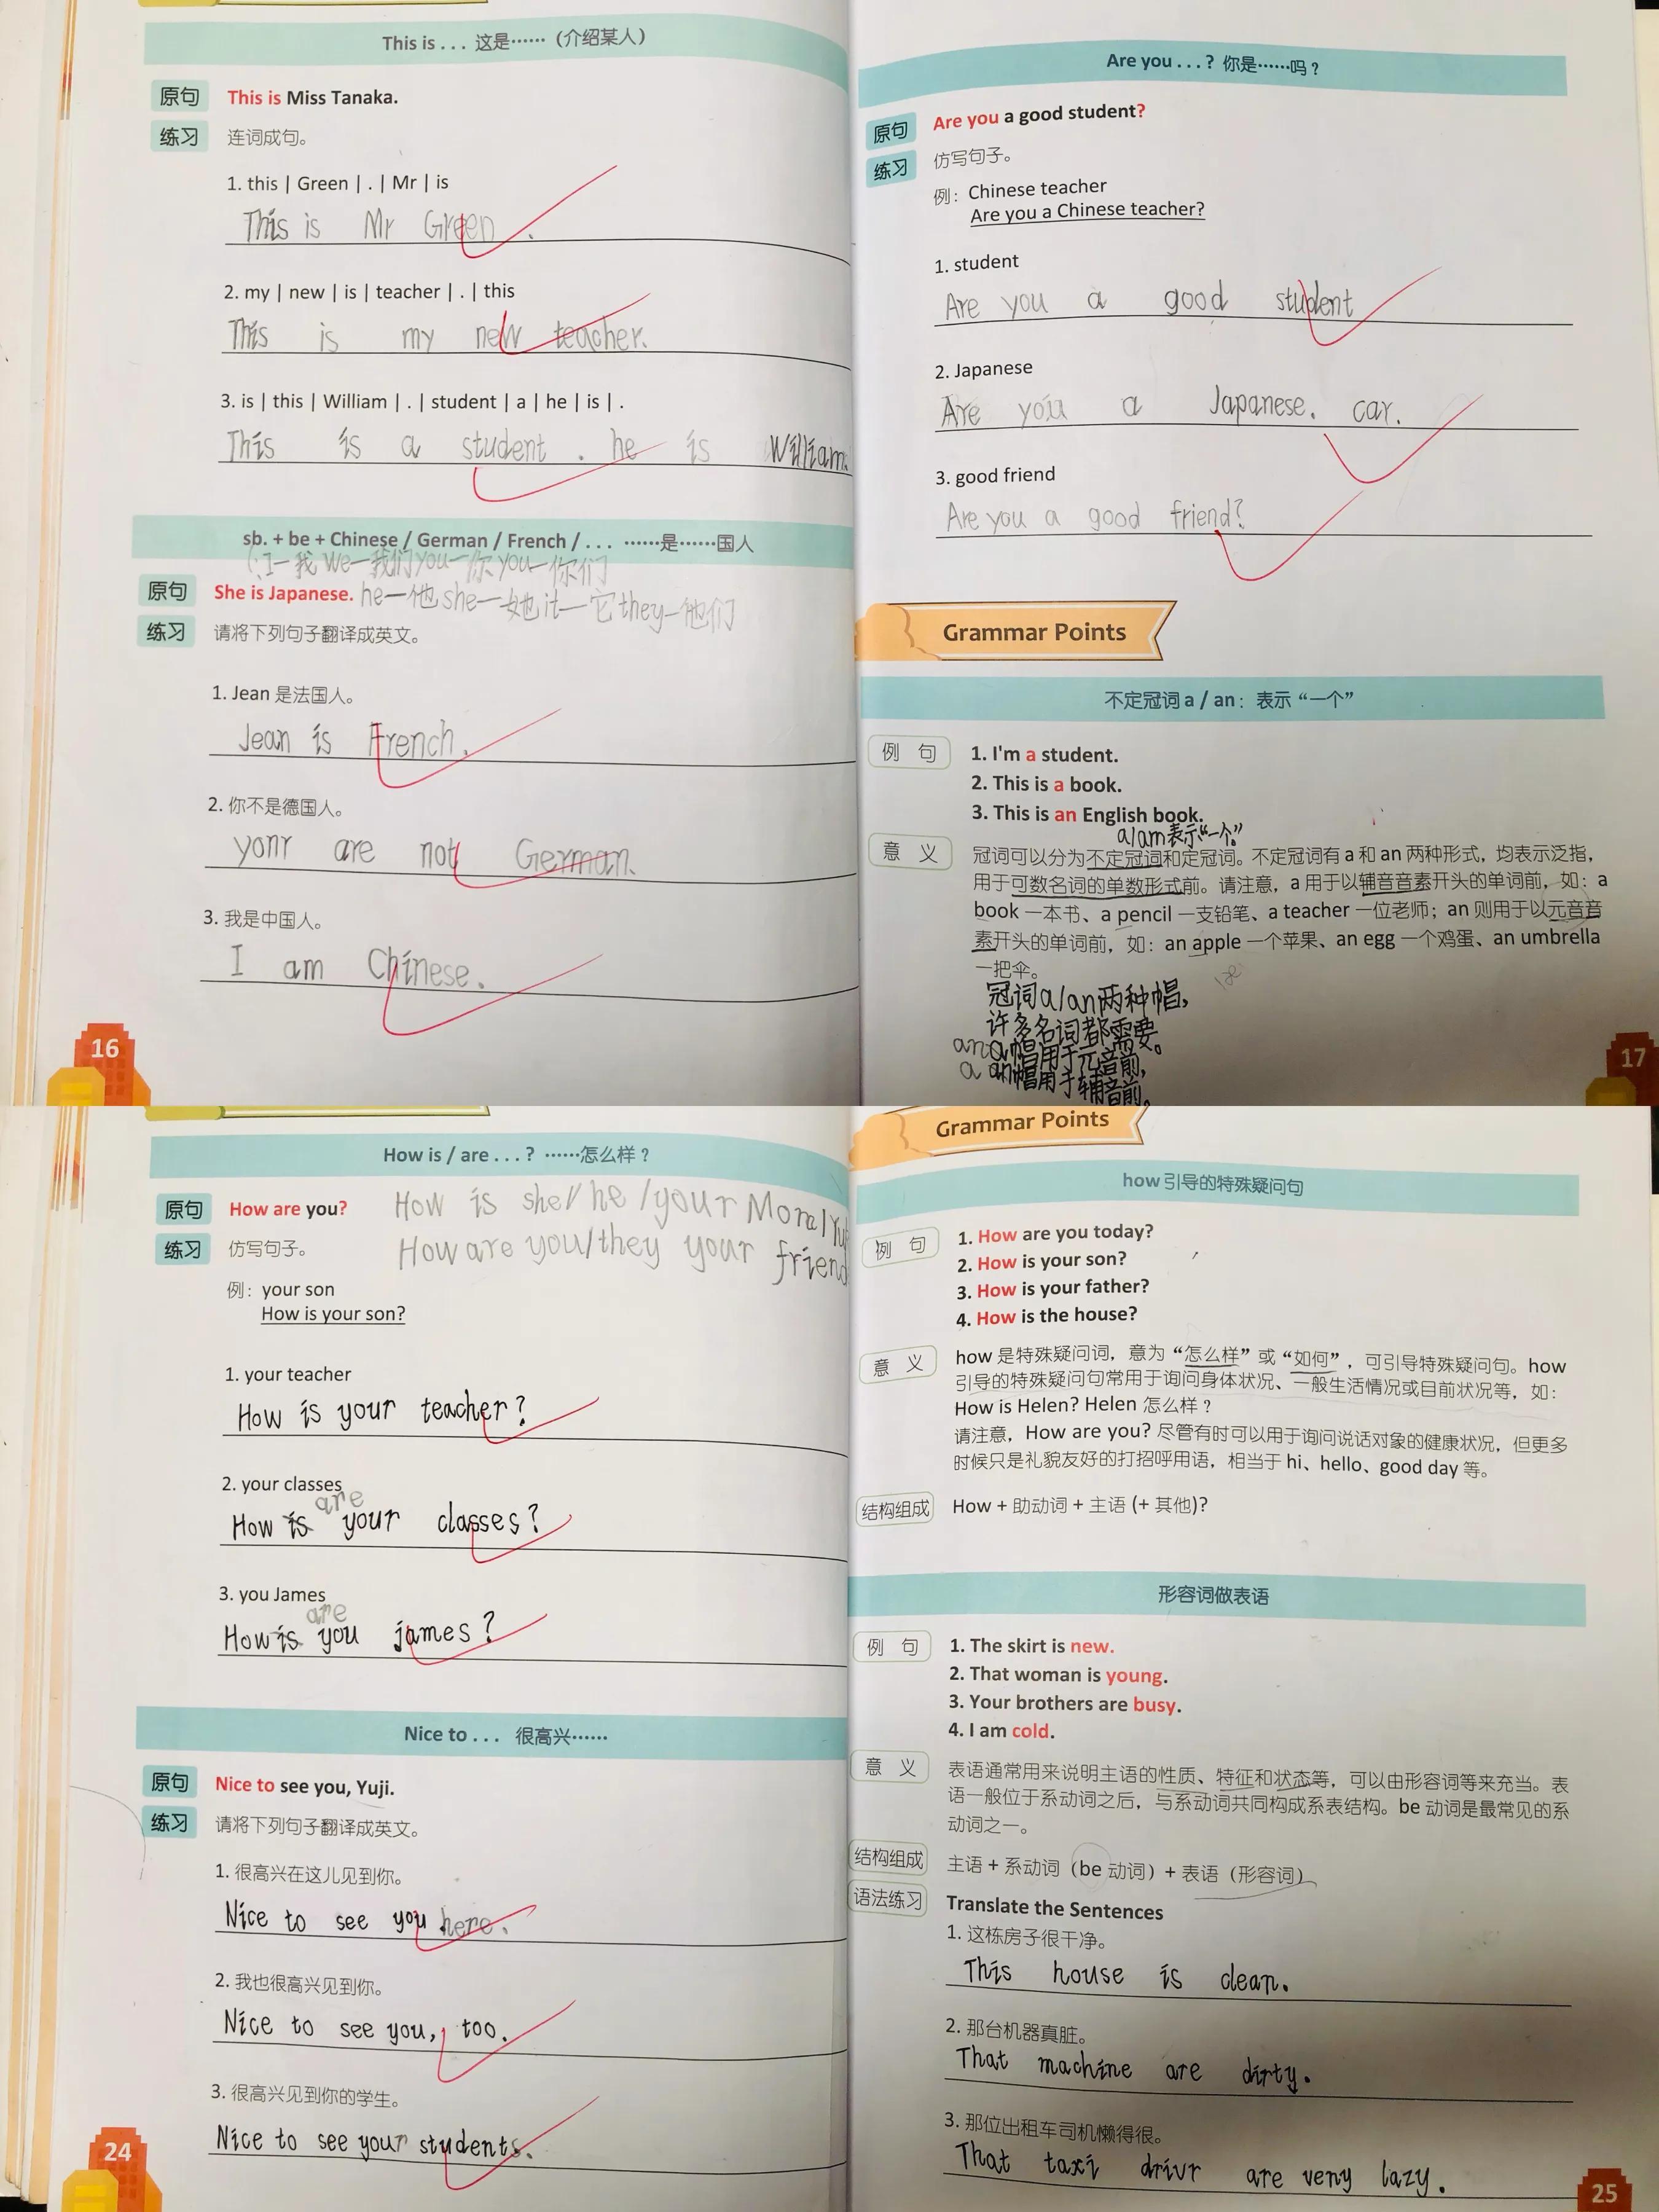 This is . . . 这是……（介绍某人）
原句 This is Miss Tanaka.
练习 连词成句。
1. this | Green | . | Mr | is
This is Mr Green .
2. my | new | is | teacher | . | this
This is my new teacher.
3. is | this | William | . | student | a | he | is | .
This is a student . he is William.
sb. + be + Chinese / German / French / . . . ……是……国人
I一我 We一我们 you一你 you一你们
原句 She is Japanese. he一他 she一她 it一它 they一他们
练习 请将下列句子翻译成英文。
1. Jean 是法国人。
Jean is French.
2. 你不是德国人。
yonr are not German.
3. 我是中国人。
I am Chinese.
16
Are you . . . ? 你是……吗？
原句 Are you a good student?
练习 仿写句子。
例：Chinese teacher
Are you a Chinese teacher?
1. student
Are you a good student
2. Japanese
Are you a Japanese. car.
3. good friend
Are you a good friend?
Grammar Points
不定冠词 a / an：表示“一个”
例 句 1. I'm a student.
2. This is a book.
3. This is an English book.
a/am表示“一个”
意 义 冠词可以分为不定冠词和定冠词。不定冠词有 a 和 an 两种形式，均表示泛指，
用于可数名词的单数形式前。请注意，a 用于以辅音音素开头的单词前，如：a
book 一本书、a pencil 一支铅笔、a teacher 一位老师；an 则用于以元音音
素开头的单词前，如：an apple 一个苹果、an egg 一个鸡蛋、an umbrella
一把伞。
冠词a/an两种帽，
许多名词都需要。
an a帽用于元音前，
a an帽用于辅音前。
17
How is / are . . . ? ……怎么样？
原句 How are you? How is she/he /your Mom/
练习 仿写句子。 How are you/they your friend
例：your son
How is your son?
1. your teacher
How is your teacher?
2. your classes
are
How is your classes?
3. you James
are
How is you james?
Nice to . . . 很高兴……
原句 Nice to see you, Yuji.
练习 请将下列句子翻译成英文。
1. 很高兴在这儿见到你。
Nice to see you here.
2. 我也很高兴见到你。
Nice to see you, too.
3. 很高兴见到你的学生。
Nice to see your students.
24
Grammar Points
how 引导的特殊疑问句
例 句 1. How are you today?
2. How is your son?
3. How is your father?
4. How is the house?
意 义 how 是特殊疑问词，意为“怎么样”或“如何”，可引导特殊疑问句。how
引导的特殊疑问句常用于询问身体状况、一般生活情况或目前状况等，如：
How is Helen? Helen 怎么样？
请注意，How are you? 尽管有时可以用于询问说话对象的健康状况，但更多
时候只是礼貌友好的打招呼用语，相当于 hi、hello、good day 等。
结构组成 How + 助动词 + 主语 (+ 其他)?
形容词做表语
例 句 1. The skirt is new.
2. That woman is young.
3. Your brothers are busy.
4. I am cold.
意 义 表语通常用来说明主语的性质、特征和状态等，可以由形容词等来充当。表
语一般位于系动词之后，与系动词共同构成系表结构。be 动词是最常见的系
动词之一。
结构组成 主语 + 系动词（be 动词）+ 表语（形容词）
语法练习 Translate the Sentences
1. 这栋房子很干净。
This house is clean.
2. 那台机器真脏。
That machine are dirty.
3. 那位出租车司机懒得很。
That taxi drivr are veny lazy.
25